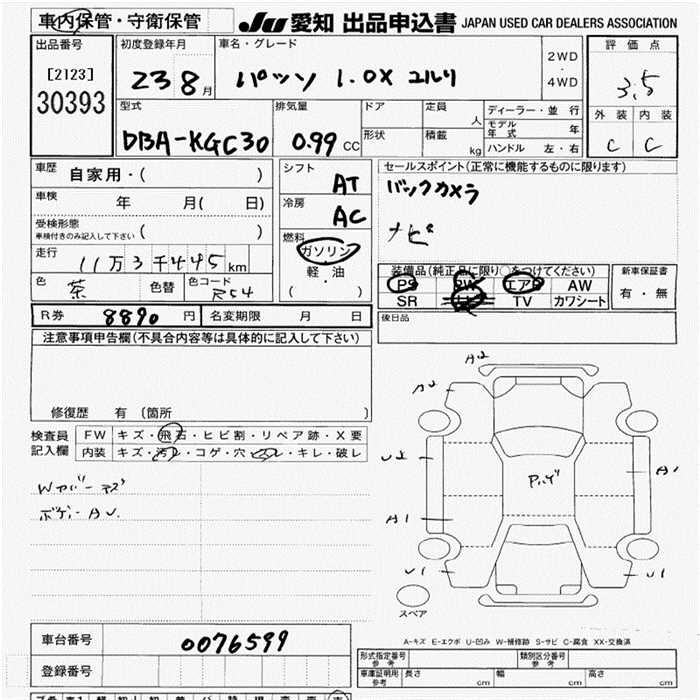 車内保管・守衛保管 JU 愛知 出品申込書 JAPAN USED CAR DEALERS ASSOCIATION
出品番号 初度登録年月 車名・グレード 2WD ・ 4WD 評価点
[2123] 23 8月 パッソ 1.0X 3.5
30393
型式 排気量 ドア 定員 人 ディーラー・並行 外装 内装
モデル年式 年
DBA-KGC30 0.99 CC 形状 積載 kg ハンドル 左・右 C C
車歴 自家用・( ) シフト AT セールスポイント(正常に機能するものに限ります)
車検 年 月( 日) 冷房 AC バックカメラ
受検形態 ( )
車検付きのみ記入して下さい
燃料 ガソリン ナビ
走行 11万3千445km 軽・油
( )
装備品(純正品に限り○をつけてください) 新車保証書
PS PW エアB AW 有・無
SR TV カワシート
色 茶 色替 色コード R54
R券 8890円 名変期限 月 日 後日品
注意事項申告欄(不具合内容等は具体的に記入して下さい)
修復歴 有 (箇所 )
検査員記入欄 FW キズ・飛石・ヒビ割・リペア跡・X要
内装 キズ・汚レ・コゲ・穴・ビレ・キレ・破レ
A2
A2
A1
A1
U1
U1
スペア
A-キズ E-エクボ U-凹み W-補修跡 S-サビ C-腐食 XX-交換済
車台番号 0076599
登録番号
形式指定番号 参考 類別区分番号 参考
車庫証明用 参考 長さ cm 幅 cm 高さ cm